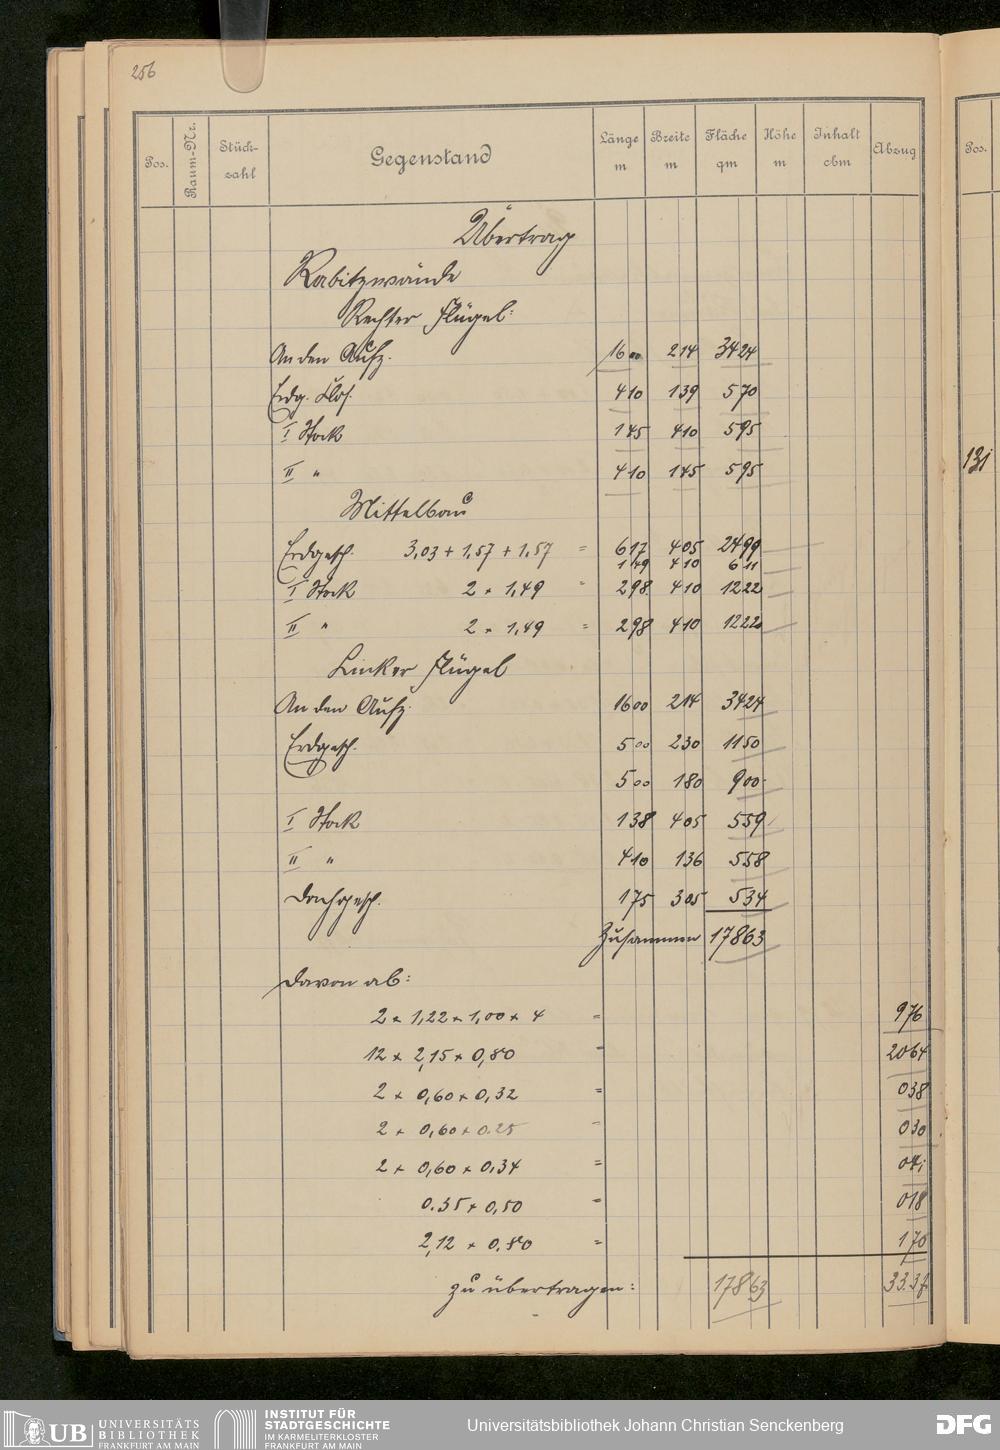 256
Pos. Raum-Nr. Stück-zahl Gegenstand Länge m Breite m Fläche qm Höhe m Inhalt cbm Abzug
Pos.
Übertrag
Rabitzwände
Rechter Flügel:
An den Aufz. 16 00 2 14 34 24
Erdg. Klos. 4 10 1 39 5 70
I Stock 1 45 4 10 5 95
II " 4 10 1 45 5 95
131
Mittelbau
Erdgesch. 3,03 + 1,57 + 1,57 = 6 17 4 05 24 99
1 49 4 10 6 11
I Stock 2 × 1,49 = 2 98 4 10 12 22
II " 2 × 1,49 = 2 98 4 10 12 22
Linker Flügel
An den Aufz. 16 00 2 14 34 24
Erdgesch. 5 00 2 30 11 50
5 00 1 80 9 00
I Stock 1 38 4 05 5 59
II " 4 10 1 36 5 58
Dachgesch. 1 75 3 05 5 34
Zusammen 178 63
Davon ab:
2 × 1,22 × 1,00 × 4 = 9 76
12 × 2,15 × 0,80 = 20 64
2 × 0,60 × 0,32 = 0 38
2 × 0,60 × 0.25 = 0 30
2 × 0,60 × 0,34 = 0 41
0.35 × 0,50 = 0 18
2,12 × 0,80 = 1 70
zu übertragen: 178 63 33.37
UB UNIVERSITÄTS
BIBLIOTHEK
FRANKFURT AM MAIN
INSTITUT FÜR
STADTGESCHICHTE
IM KARMELITERKLOSTER
FRANKFURT AM MAIN
Universitätsbibliothek Johann Christian Senckenberg
DFG